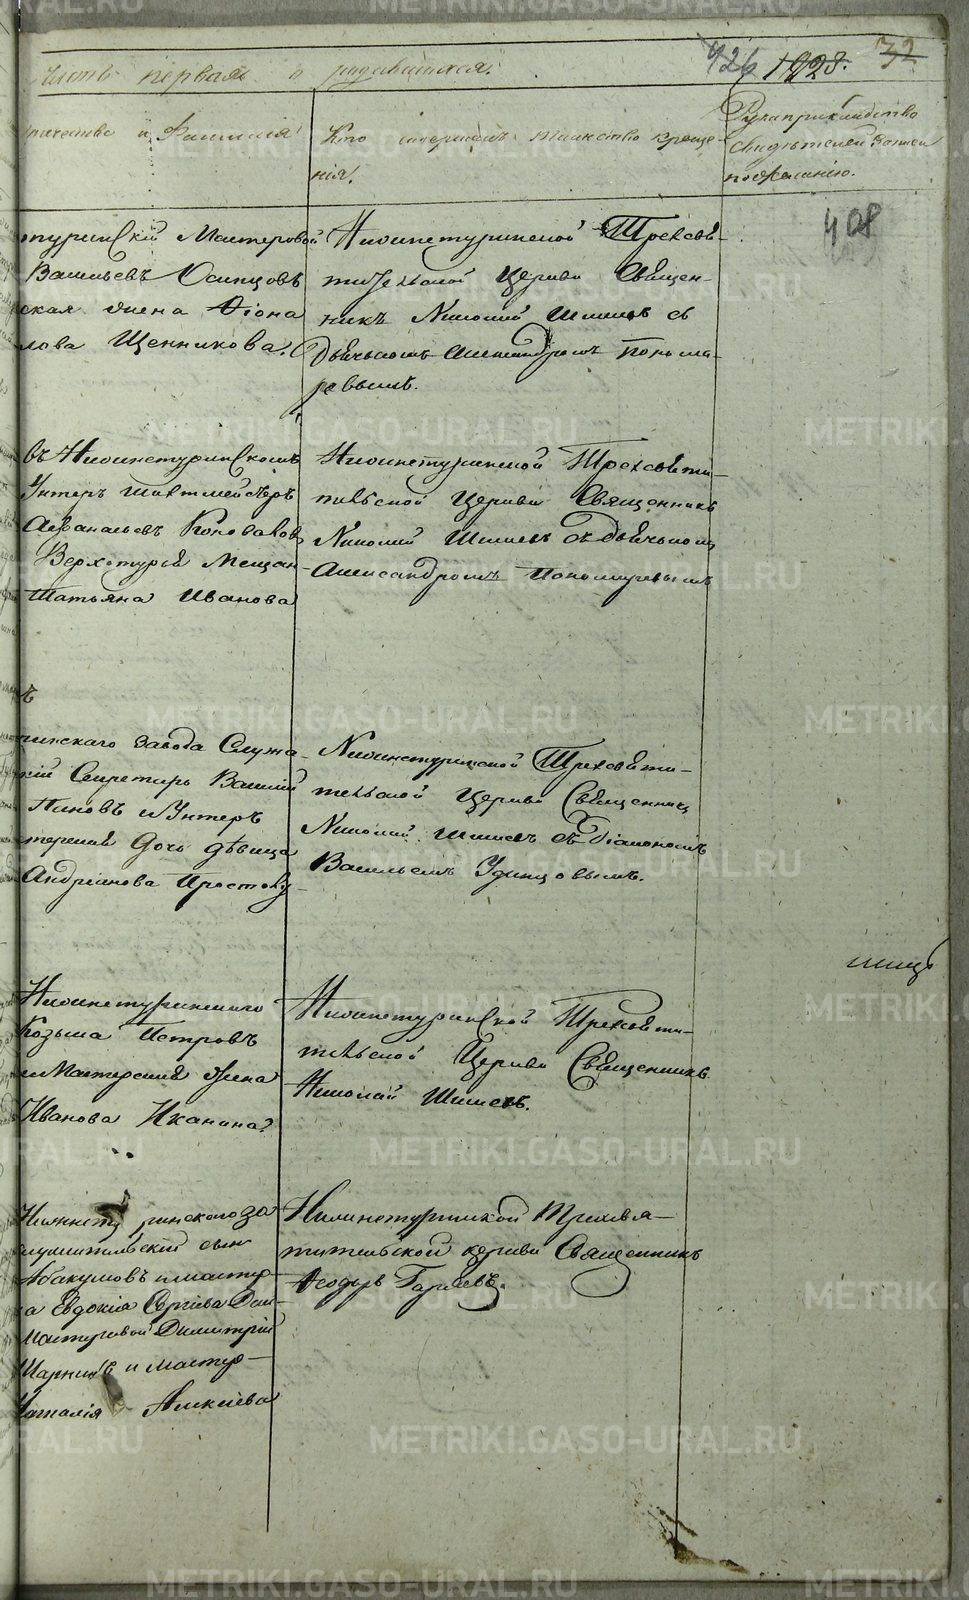 Часть первая о родившихся.
426 1923. 32
отчество и Фамилія
Кто совершалъ таинство креще-
нія.
Рукоприкладство
свидѣтелей записи
по желанію.
408
туринскій Мастеровой
Васильевъ Осинцовъ
ская жена Ѳіона
лова Щенникова.
Нижнетуринской Трехсвя-
тительской Церкви Священ-
никъ Николай Шишевъ съ
Дьячькомъ Александромъ Понома-
ревымъ.
въ Нижнетуринскомъ
Унтеръ шихтмейстеръ
Афанасьевъ Коновалов
Верхотурій Мещан-
Татьяна Иванова
Нижнетуринской Трехсвяти-
тельской Церкви Священникъ
Николай Шишевъ съ дьячькомъ
Александромъ Пономаревымъ
ринскаго завода Служа-
кій Секретарь Василій
Пиновъ и Унтеръ
терскій дочь дѣвица
Андріанова Простоку-
Нижнетуринской Трехсвяти-
тельской Церкви Священникъ
Николай Шишевъ съ Діакономъ
Васильемъ Удинцовымъ.
Нижнетуринскаго
Козьма Петровъ
Мастерскій жена
Иванова Иканина
Нижнетуринской Трехсвяти-
тельской Церкви Священникъ
Николай Шишевъ.
Нижнетуринскаго за
служительскій сын
Абакумовъ и мастер-
ва Евдокія Сергіева Дом-
Мастеровой Димитрій
и мастер-
Наталія Алексіева
Нижнетуринской Трехсвя-
тительской церкви Священникъ
Ѳеодоръ Гаряевъ.
METRIKI.GASO-URAL.RU